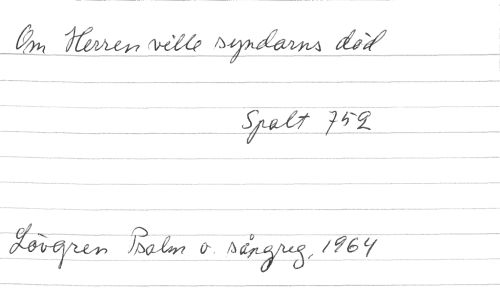 Om Herren ville syndarns död
Spalt 752
Lövgren Psalm o. sångreg, 1964